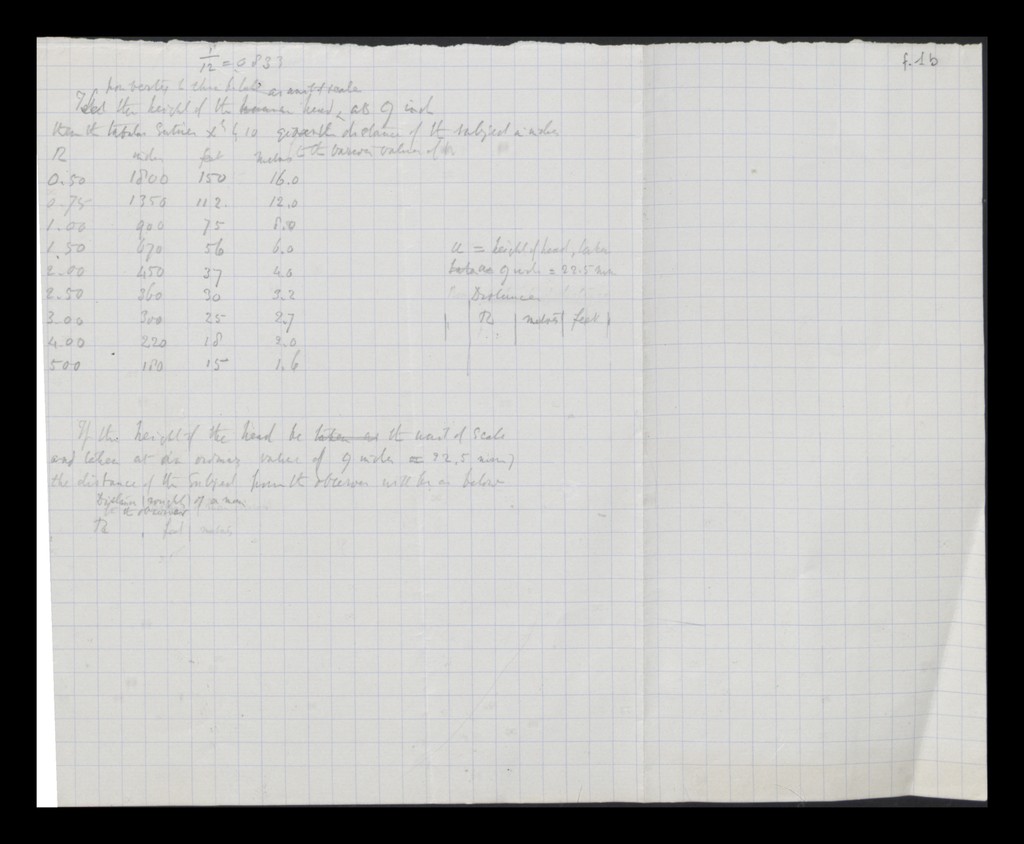 f.1b
1/12 = 0833
as unit of scale
the height of the human head, as 9 inch
then the tabular Entries x by 10 give the distance of the subject in inches
to the various values of R
R inches feet metres
0.50 1800 150 16.0
0.75 1350 112. 12.0
1.00 900 75 8.0
1.50 670 56 6.0
2.00 450 37 4.0
2.50 360 30 3.2
3.00 300 25 2.7
4.00 220 18 2.0
500 180 15 1.6
u = height of head, taken
to be as 9 inch = 22.5 mm
Distances
R metres feet
If the height of the head be taken as the unit of scale
and taken at its ordinary value of 9 inches = 22,5 mm)
the distance of the subject from the observer will be as below
Distance roughly of a man
to the observer
R feet metres